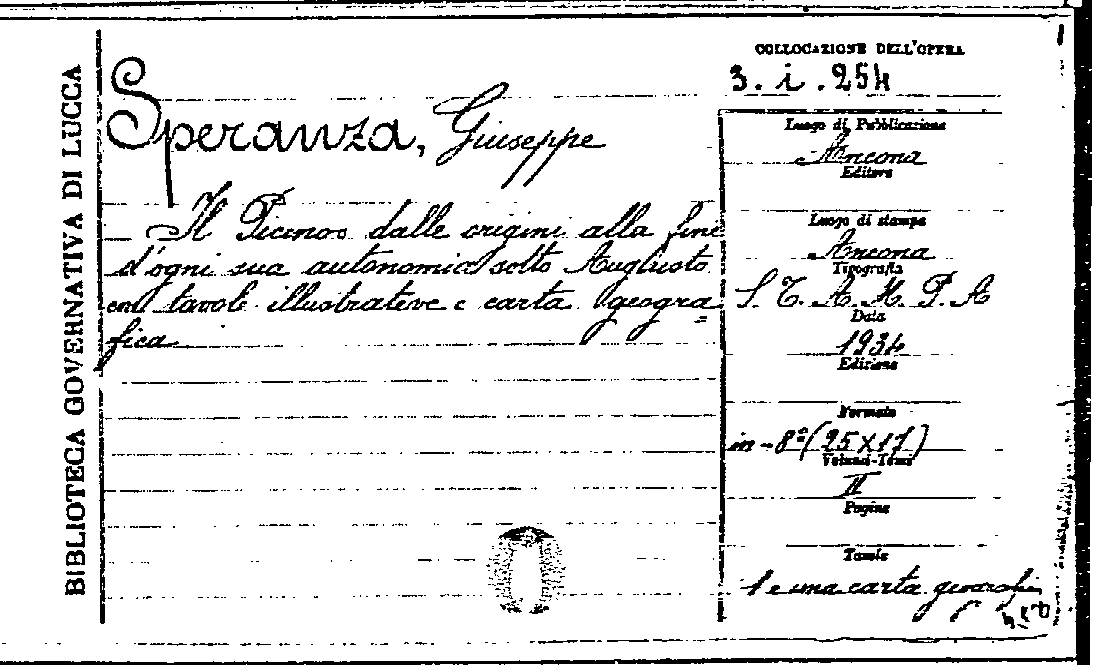 BIBLIOTECA GOVERNATIVA DI LUCCA
COLLOCAZIONE DELL'OPERA
3. i. 254
Speranza, Giuseppe
Il Piceno dalle origini alla fine
d'ogni sua autonomia sotto Augusto
con tavole illustrative e carta geogra=
fica
Luogo di Pubblicazione
Ancona
Editore
Luogo di stampa
Ancona
Tipografia
S. T. A. M. P. A
Data
1934
Edizione
Formato
in-8° (25x17)
Volumi-Tomi
II
Pagine
Tavole
1 e una carta